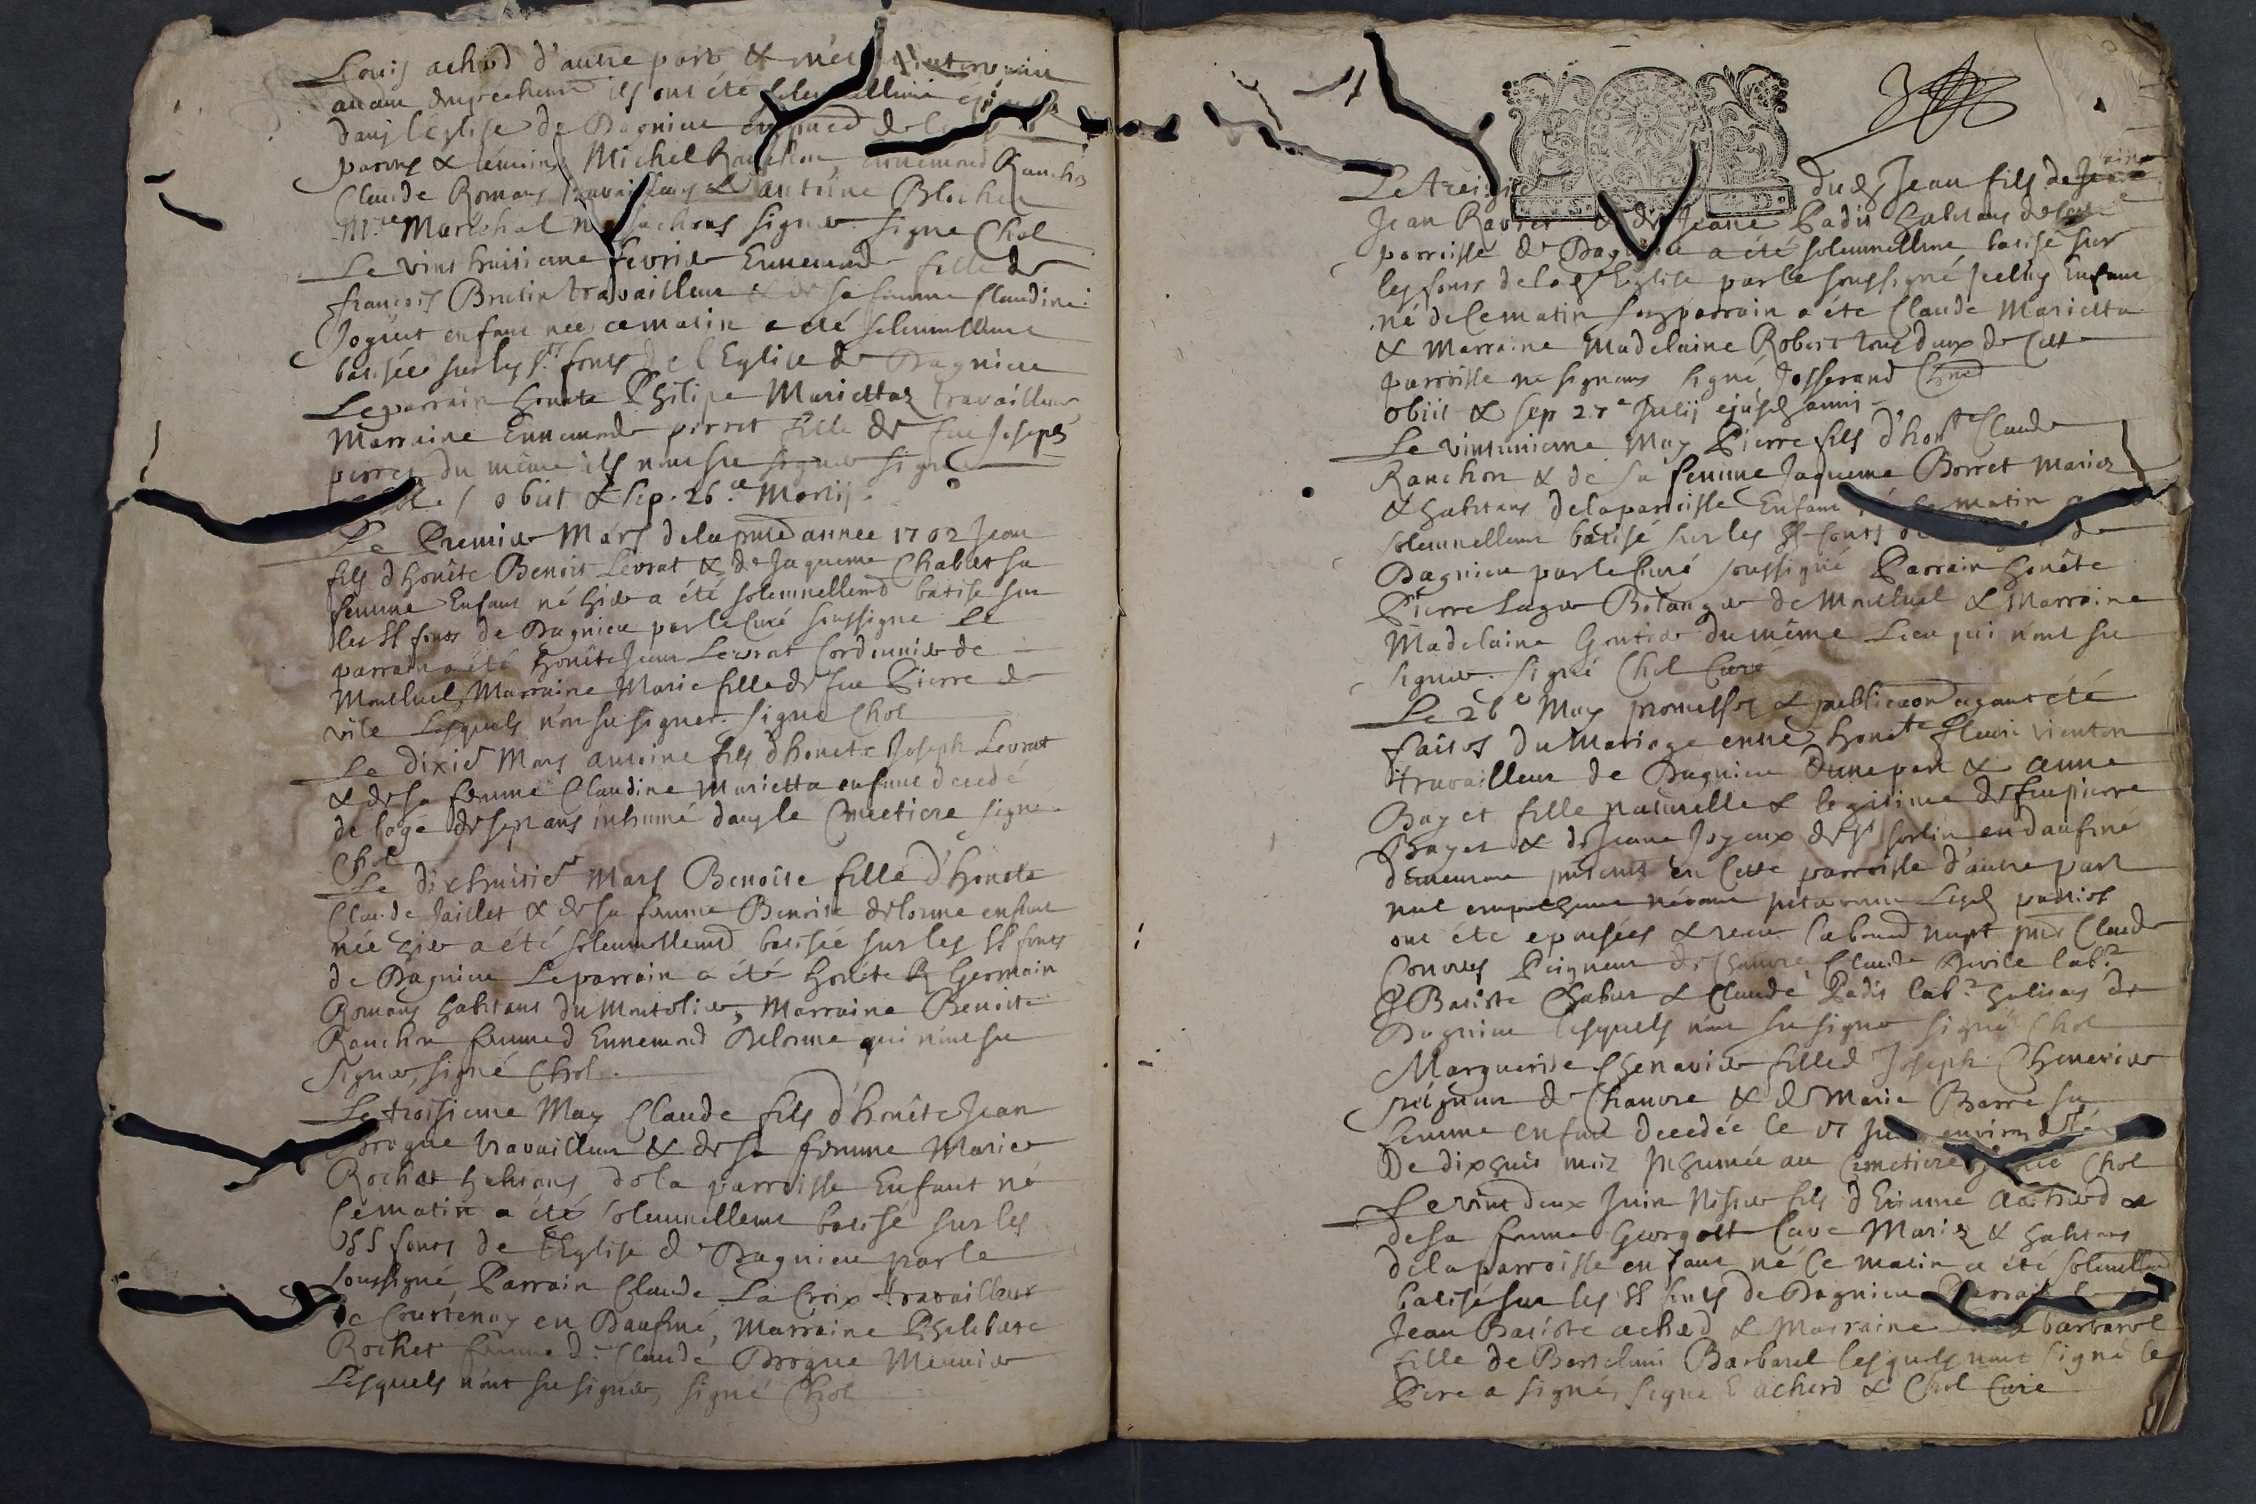 Louis achard d'autre part &
aucun empechem ils ont été solemnellem
dans l'Eglise de Dagnieu
parens & témoins Michel Ranchon Ennemond Ranchon
Claude Romans travailleurs & antoine Blochet
M.re Maréchal sachans signer signé Chol
Le vint huitieme fevrier Ennemonde fille de
françois Brulin travailleur & de sa femme Claudine
Joguet enfant née ce matin a été solemnellemt
batisée sur les ss. fonts de l'Eglise de Dagnieu
Le parrain honete Philipe Mariettaz travailleur
Marraine Ennemonde perret fille de feu Joseph
perret du même ils n'ont su signer signé
obiit & sep. 26.e Martij.
Le Premier Mars de la pnte année 1702 Jean
fils d'honête Benoit Levrat & de Jaqueme Chabut sa
femme Enfant né hier a été solemnellemt batisé sur
les SS fonts de Dagnieu par le Curé soussigné Le
parrain a été honête Jean Levrat Cordonnier de
Montluel, Marraine Marie fille de feu Pierre de
vile lesquels n'on su signer. signé Chol
Le dixie Mars antoine fils d'honete Joseph Levrat
& de sa femme Claudine Marietta enfant decedé
de l'age de sept ans inhumé dans le Cimetiere signé
Chol
Le dixhuitie Mars Benoîte fille d'honete
Claude Jaillet & de sa femme Benoite delorme enfant
née hier a été solemnellemt batisée sur les SS fonts
de Dagnieu Le parrain a été honête Germain
Romans habitant du Montolier, Marraine Benoite
Ranchon femme d Ennemond Delorme qui n'ont su
signer, signé Chol.
Le troisieme May Claude fils d'honête Jean
Drogue travailleur & de sa femme Marie
Rochet habitans de la parroisse Enfant né
ce matin a été solemnellemt batisé sur les
SS fonts de l'Eglise de Dagnieu par le
soussigné Parrain Claude La Croix travailleur
de Courtenay en Daufiné, Marraine
Rochet femme de Claude Drogue Meunier
Lesquels n'ont su signer, signé Chol
Le treizie dud Jean fils de
Jean Ravier & de Jeane Padis habitans de
parroisse de Dagnieu a été solemnellemt batisé sur
les fonts de lad Eglise par le soussigné Enfant
né de ce matin son parrain a été Claude Marietta
& Marraine Madelaine Robert tous deux de Cette
parroisse ne signans signé Josserand
obiit & sep 27e Julij ejusd anni
Le vintunieme May Pierre fils d'honte Claude
Ranchon & de sa femme Jaqueme Borret Mariez
& habitans de la parroisse Enfant né ce matin a
solemnellemt batisé sur les SS fonts de
Dagnieu par le Curé soussigné Parrain honête
Pierre Boulanger de Montluel & Marraine
Madelaine Gontier du même Lieu qui n'ont su
signer. signé Chol Curé
Le 26e May promesses & publicaon ayant été
faites du Mariage entre honete fleuri vienton
travailleur de Dagnieu d'une part & anne
Bayet fille naturelle & legitime de feu pierre
Bayet & de Jeane Joyeux de St sorlin en daufiné
demeurant en Cette parroisse d'autre part
nul empechemt Lesd parties
ont été epousées & receu la bened nupt Claude
Convers Peigneur de Chanvre Claude Devile lab.r
J Batiste Chabut & Claude Padis lab.r habitans de
Dagnieu lesquels n'ont su signer signé Chol
Marguerite Chenavier fille d Joseph Chenavier
peigneur de Chanvre & de Marie Barre sa
femme enfant decedée le
De dixhuit mois Inhumée au Cimetiere signé Chol
Le vint deux Juin fils d'Etienne achard &
de sa femme Cave Mariez & habitans
de la parroisse enfant né ce matin a été solemellemt
batisé sur les SS fonts de Dagnieu Parrain
Jean Batiste achard & Marraine barbarel
fille de Bartelemi Barbarel lesquels n'ont signé le
Pere a signé, signé E achard & Chol Curé